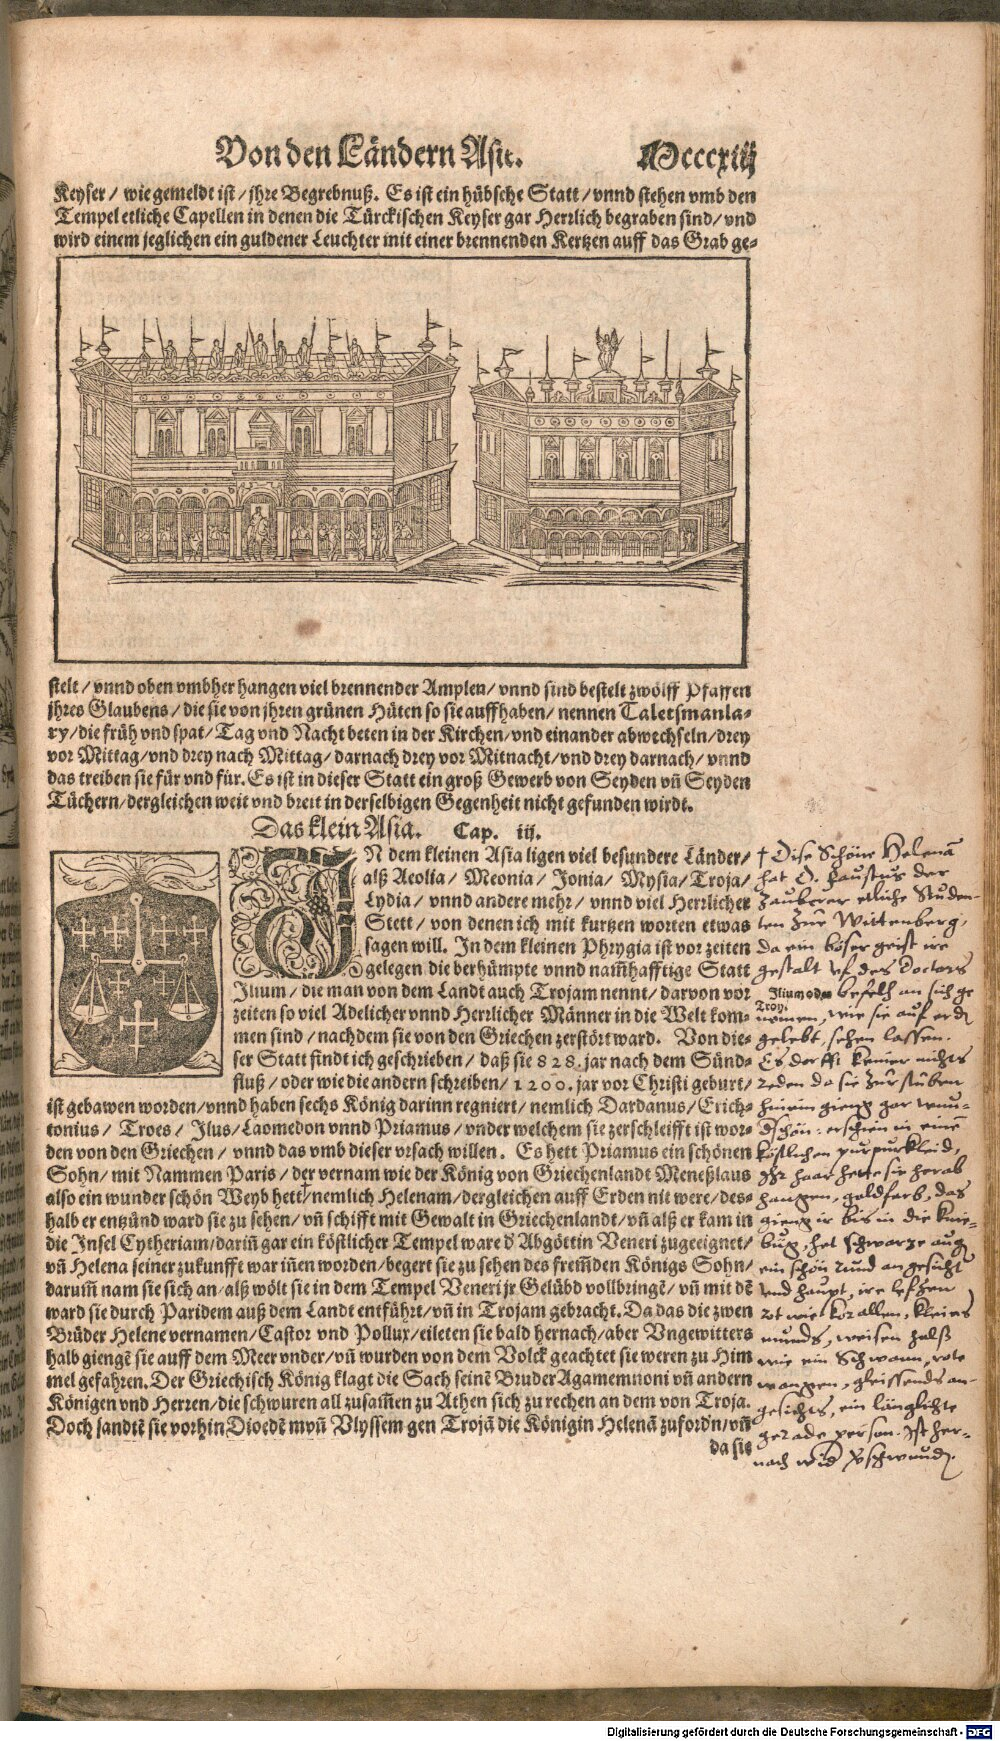 Von den Ländern Asie. Mccccxiij
Keyser/ wie gemeldt ist/ jhre Begrebnuß. Es ist ein hübsche Statt/ vnnd stehen vmb den
Tempel etliche Capellen in denen die Türckischen Keyser gar Herrlich begraben sind/ vnd
wird einem jeglichen ein guldener Leuchter mit einer brennenden Kertzen auff das Grab ge-
stelt/ vnnd oben vmbher hangen viel brennender Amplen/ vnnd sind bestelt zwölff Pfaffen
jhres Glaubens/ die sie von jhren grünen Hüten so sie auffhaben/ nennen Taletsmanla-
ry/ die früh vnd spat/ Tag vnd Nacht beten in der Kirchen/ vnd einander abwechseln/ drey
vor Mittag/ vnd drey nach Mittag/ darnach drey vor Mitnacht/ vnd drey darnach/ vnnd
das treiben sie für vnd für. Es ist in dieser Statt ein groß Gewerb von Seyden vñ Seyden
Tüchern/ dergleichen weit vnd breit in derselbigen Gegenheit nicht gefunden wirdt.
Das klein Asia. Cap. iij.
IN dem kleinen Asia ligen viel besundere Länder/
alß Aeolia/ Meonia/ Jonia/ Mysia/ Troja/
Lydia/ vnnd andere mehr/ vnnd viel Herrlicher
Stett/ von denen ich mit kurtzen worten etwas
sagen will. In dem kleinen Phrygia ist vor zeiten
gelegen die berhümpte vnnd nam̃hafftige Statt
Ilium/ die man von dem Landt auch Trojam nennt/ darvon vor
zeiten so viel Adelicher vnnd Herrlicher Männer in die Welt kom-
men sind/ nachdem sie von den Griechen zerstört ward. Von die-
ser Statt findt ich geschrieben/ daß sie 828. jar nach dem Sünd-
fluß/ oder wie die andern schreiben/ 1200. jar vor Christi geburt/
ist gebawen worden/ vnnd haben sechs König darinn regniert/ nemlich Dardanus/ Erich-
tonius/ Troes/ Ilus/ Laomedon vnnd Priamus/ vnder welchem sie zerschleifft ist wor-
den von den Griechen/ vnnd das vmb dieser vrsach willen. Es hett Priamus ein schönen
Sohn/ mit Nammen Paris/ der vernam wie der König von Griechenlandt Meneßlaus
also ein wunder schön Weyb hett†/ nemlich Helenam/ dergleichen auff Erden nit were/ des-
halb er entzünd ward sie zu sehen/ vñ schifft mit Gewalt in Griechenlandt/ vñ alß er kam in
die Insel Cytheriam/ dariñ gar ein köstlicher Tempel ware d' Abgöttin Veneri zugeeignet/
vñ Helena seiner zukunfft war iñen worden/ begert sie zu sehen des frem̃den Königs Sohn/
darum̃ nam sie sich an/ alß wölt sie in dem Tempel Veneri jr Gelübd vollbringẽ/ vñ mit dẽ
ward sie durch Paridem auß dem Landt entführt/ vñ in Trojam gebracht. Da das die zwen
Brüder Helene vernamen/ Castor vnd Pollux/ eileten sie bald hernach/ aber Vngewitters
halb giengẽ sie auff dem Meer vnder/ vñ wurden von dem Volck geachtet sie weren zu Him
mel gefahren. Der Griechisch König klagt die Sach seinẽ Bruder Agamemnoni vñ andern
Königen vnd Herren/ die schwuren all zusam̃en zu Athen sich zu rechen an dem von Troja.
Doch sandtẽ sie vorhin Dioedẽ mvñ Vlyssem gen Trojã die Königin Helenã zufordn/ vñ
da sie
† Dise Schöne Helenã
hat D. Faustus der
Zauberer etliche Studen-
ten zur Wittenberg,
da ein böser geist ire
gestalt vf des Doctors
befelch an sich ge
Ilium oder
Troy.
nomen, wie sie auf erdẽ
gelebt, sehen lassen.
Es dorfft keiner nichts
reden da sie zur stuben
hinein gieng gar wun-
dschön: erschien in eine
köstlichen purpurkleid,
Ihr haar hette sie herab
hangen, goldfarb, das
gieng ir bis in die knie-
bug, het schwarze aug
ein schön rund angesicht
vnd haupt, ire lefzen
rot wie korallen, kleines
munds, weisen halß
wie ein Schwann, rote
wangen, gleissends an-
gesichts, ein länglichte
gerade person. Ist her-
nach wid verschwundẽ.
Digitalisierung gefördert durch die Deutsche Forschungsgemeinschaft - DFG